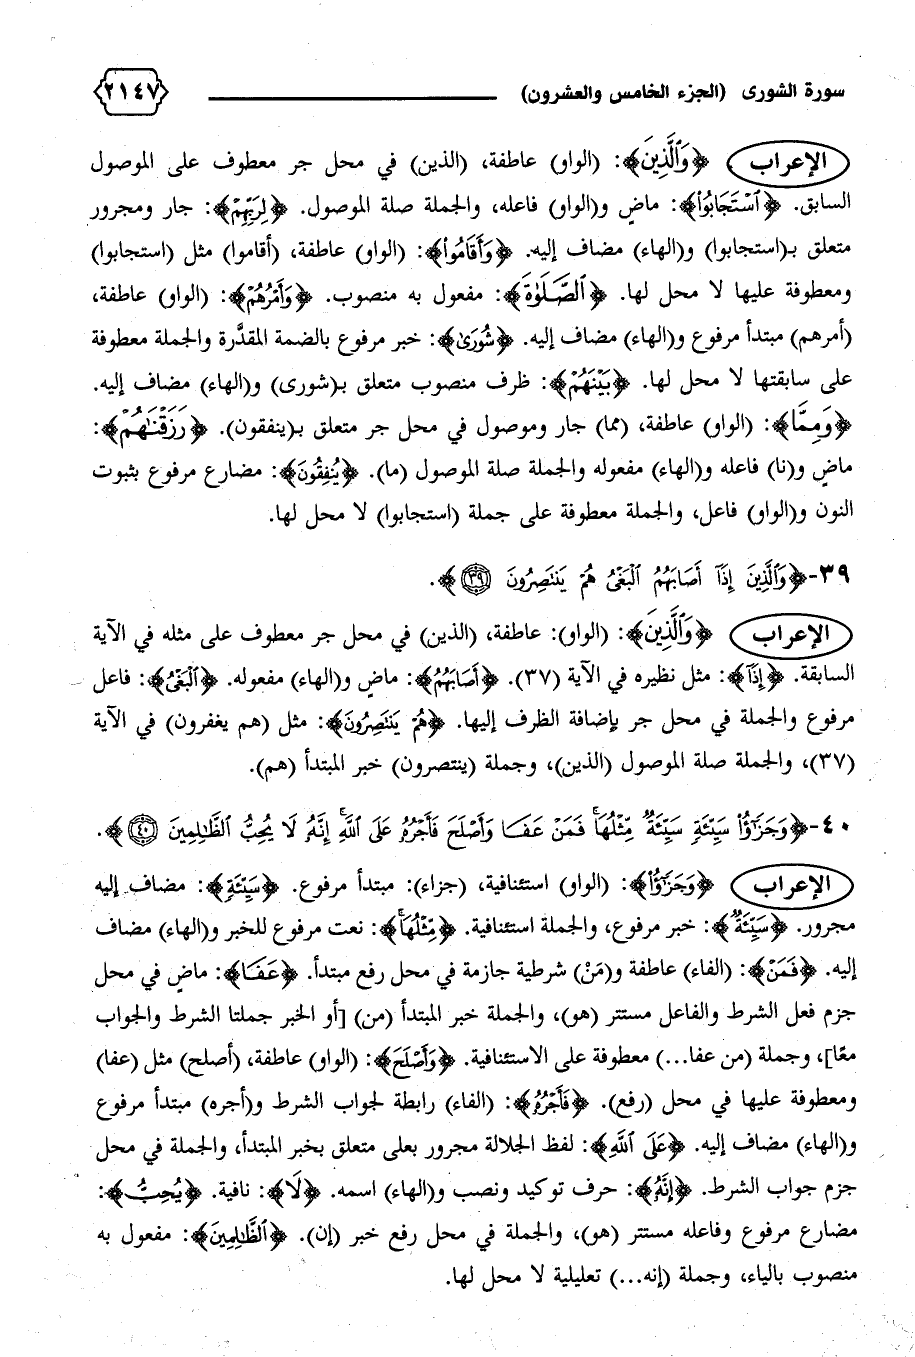 سورة الشورى (الجزء الخامس والعشرون) ٢١٤٧
الإعراب ﴿وَٱلَّذِينَ﴾: (الواو) عاطفة، (الذين) في محل جر معطوف على الموصول
السابق. ﴿ٱسْتَجَابُوا۟﴾: ماضٍ و(الواو) فاعله، والجملة صلة الموصول. ﴿لِرَبِّهِمْ﴾: جار ومجرور
متعلق بـ(استجابوا) و(الهاء) مضاف إليه. ﴿وَأَقَامُوا۟﴾: (الواو) عاطفة، (أقاموا) مثل (استجابوا)
ومعطوفة عليها لا محل لها. ﴿ٱلصَّلَوٰةَ﴾: مفعول به منصوب. ﴿وَأَمْرُهُمْ﴾: (الواو) عاطفة،
(أمرهم) مبتدأ مرفوع و(الهاء) مضاف إليه. ﴿شُورَىٰ﴾: خبر مرفوع بالضمة المقدَّرة والجملة معطوفة
على سابقتها لا محل لها. ﴿بَيْنَهُمْ﴾: ظرف منصوب متعلق بـ(شورى) و(الهاء) مضاف إليه.
﴿وَمِمَّا﴾: (الواو) عاطفة، (مما) جار وموصول في محل جر متعلق بـ(ينفقون). ﴿رَزَقْنَٰهُمْ﴾:
ماضٍ و(نا) فاعله و(الهاء) مفعوله والجملة صلة الموصول (ما). ﴿يُنفِقُونَ﴾: مضارع مرفوع بثبوت
النون و(الواو) فاعل، والجملة معطوفة على جملة (استجابوا) لا محل لها.
٣٩-﴿وَٱلَّذِينَ إِذَآ أَصَابَهُمُ ٱلْبَغْىُ هُمْ يَنتَصِرُونَ ٣٩﴾.
الإعراب ﴿وَٱلَّذِينَ﴾: (الواو): عاطفة، (الذين) في محل جر معطوف على مثله في الآية
السابقة. ﴿إِذَآ﴾: مثل نظيره في الآية (٣٧). ﴿أَصَابَهُمُ﴾: ماضٍ و(الهاء) مفعوله. ﴿ٱلْبَغْىُ﴾: فاعل
مرفوع والجملة في محل جر بإضافة الظرف إليها. ﴿هُمْ يَنتَصِرُونَ﴾: مثل (هم يغفرون) في الآية
(٣٧)، والجملة صلة الموصول (الذين)، وجملة (ينتصرون) خبر المبتدأ (هم).
٤٠-﴿وَجَزَٰٓؤُا۟ سَيِّئَةٍ سَيِّئَةٌ مِّثْلُهَا ۖ فَمَنْ عَفَا وَأَصْلَحَ فَأَجْرُهُۥ عَلَى ٱللَّهِ ۚ إِنَّهُۥ لَا يُحِبُّ ٱلظَّٰلِمِينَ ٤٠﴾.
الإعراب ﴿وَجَزَٰٓؤُا۟﴾: (الواو) استئنافية، (جزاء): مبتدأ مرفوع. ﴿سَيِّئَةٍ﴾: مضاف إليه
مجرور. ﴿سَيِّئَةٌ﴾: خبر مرفوع، والجملة استئنافية. ﴿مِّثْلُهَا ۖ﴾: نعت مرفوع للخبر و(الهاء) مضاف
إليه. ﴿فَمَنْ﴾: (الفاء) عاطفة و(مَنْ) شرطية جازمة في محل رفع مبتدأ. ﴿عَفَا﴾: ماض في محل
جزم فعل الشرط والفاعل مستتر (هو)، والجملة خبر المبتدأ (من) [أو الخبر جملتا الشرط والجواب
معًا]، وجملة (من عفا...) معطوفة على الاستئنافية. ﴿وَأَصْلَحَ﴾: (الواو) عاطفة، (أصلح) مثل (عفا)
ومعطوفة عليها في محل (رفع). ﴿فَأَجْرُهُۥ﴾: (الفاء) رابطة لجواب الشرط و(أجره) مبتدأ مرفوع
و(الهاء) مضاف إليه. ﴿عَلَى ٱللَّهِ﴾: لفظ الجلالة مجرور بعلى متعلق بخبر المبتدأ، والجملة في محل
جزم جواب الشرط. ﴿إِنَّهُۥ﴾: حرف توكيد ونصب و(الهاء) اسمه. ﴿لَا﴾: نافية. ﴿يُحِبُّ﴾:
مضارع مرفوع وفاعله مستتر (هو)، والجملة في محل رفع خبر (إن). ﴿ٱلظَّٰلِمِينَ﴾: مفعول به
منصوب بالياء، وجملة (إنه...) تعليلية لا محل لها.